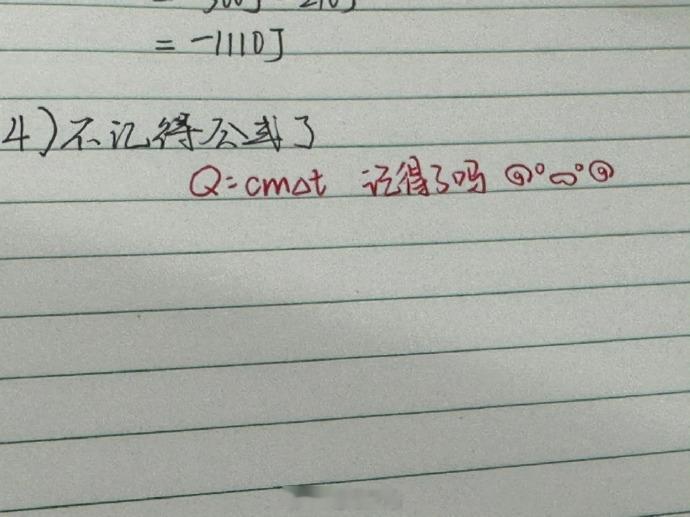 = -1110J
4)不记得公式了
Q=cm△t 记得了吗